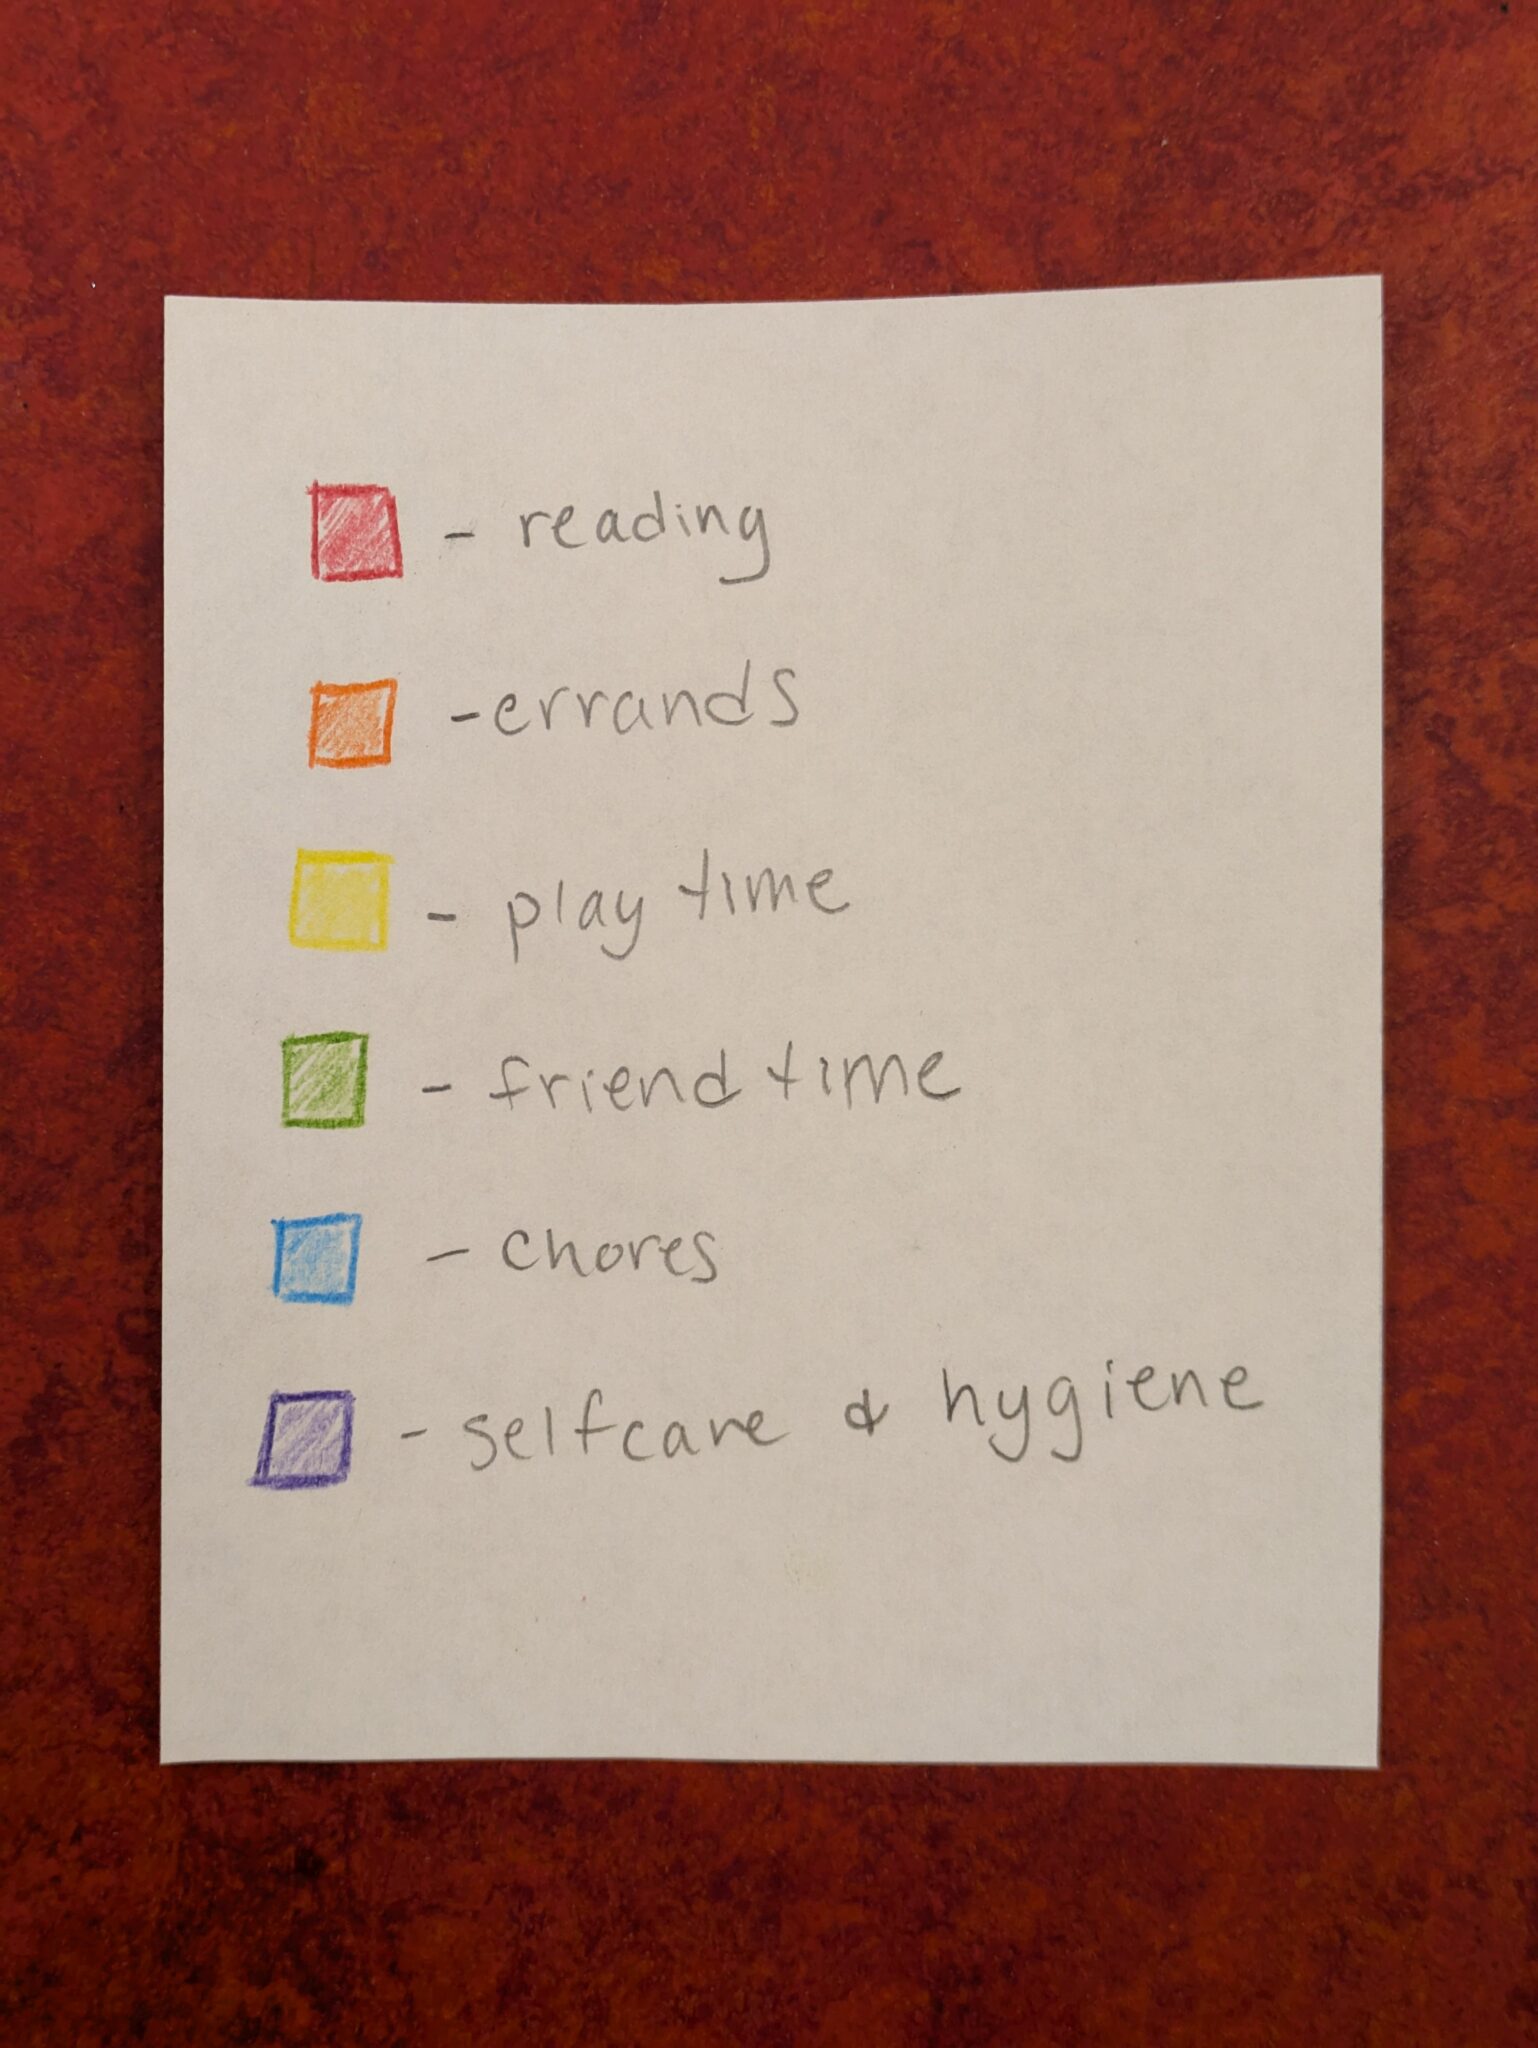 - reading
- errands
- play time
- friend time
- chores
- selfcare & hygiene